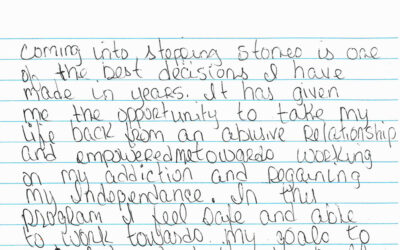 Coming into stepping stones is one
of the best decisions I have
made in years. It has given
me the opportunity to take my
life back from an abusive relationship
and empowered me towards working
on my addiction and regaining
my independance. In this
program I feel safe and able
to work towards my goals to